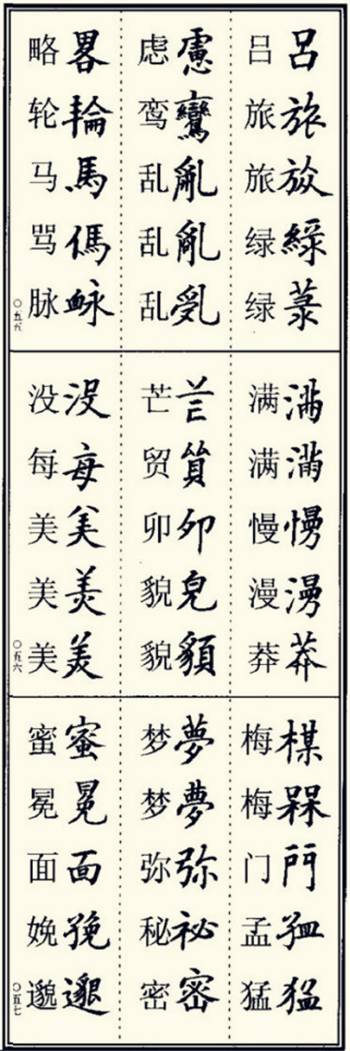 呂旅綠菉
吕旅旅绿绿
慮鸞亂亂
虑鸾乱乱乱
畧輪馬傌䘑
略轮马骂脉
〇五五
滿滿慢漫莽
满满慢漫莽
芒貿卯皃䫉
芒贸卯貌貌
没每美美美
没每美美美
〇五六
楳槑門猛
梅梅门孟猛
夢夢弥祕密
梦梦弥秘密
蜜冕面邈
蜜冕面娩邈
〇五七